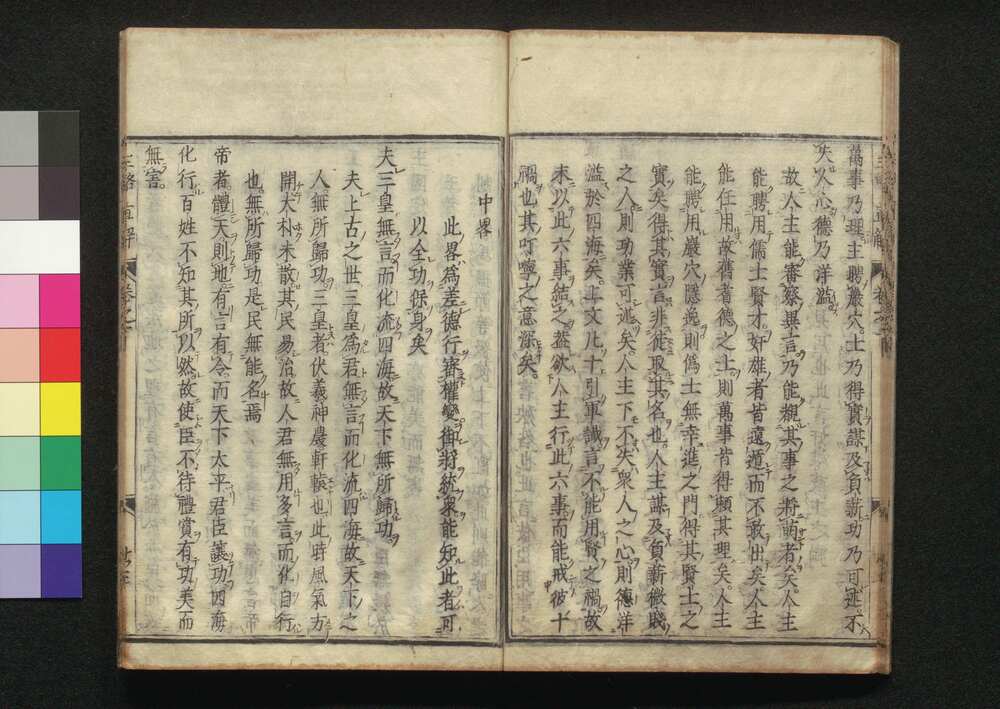 萬事乃理主聘巖穴士乃得實謀及負薪功乃可述不
失人心德乃洋溢
故人主能審察異言乃能覩其事之將萌者矣人主
能聘用儒士賢才奸雄者皆遠遁而不敢出矣人主
能任用故舊耆德之士則萬事皆得願其理矣人主
能聘用巖穴隱逸則僞士無幸進之門得其賢士之
實矣得其實言非徒取其名也人主謀及負薪微賤
之人則功業可述矣人主下不失衆人之心則德洋
溢於四海矣此文凡十引軍讖言不能用賢之禍故
末以此六事結之蓋欲人主行此六事而能戒彼十
禍也其叮嚀之意深矣
中畧
此畧爲差德行審權變御將統衆能知此者可
以全功保身矣
夫三皇無言而化流四海故天下無所歸功
夫上古之世三皇爲君無言而化流四海故天下之
人無所歸功三皇者伏羲神農軒轅也此時風氣方
開大朴未散其民易治故人君無用多言而化自行
也無所歸功是民無能名焉
帝者體天則地有言有令而天下太平君臣讓功四海
化行百姓不知其所以然故使臣不待禮賞有功美而
無害
三略直解 卷之